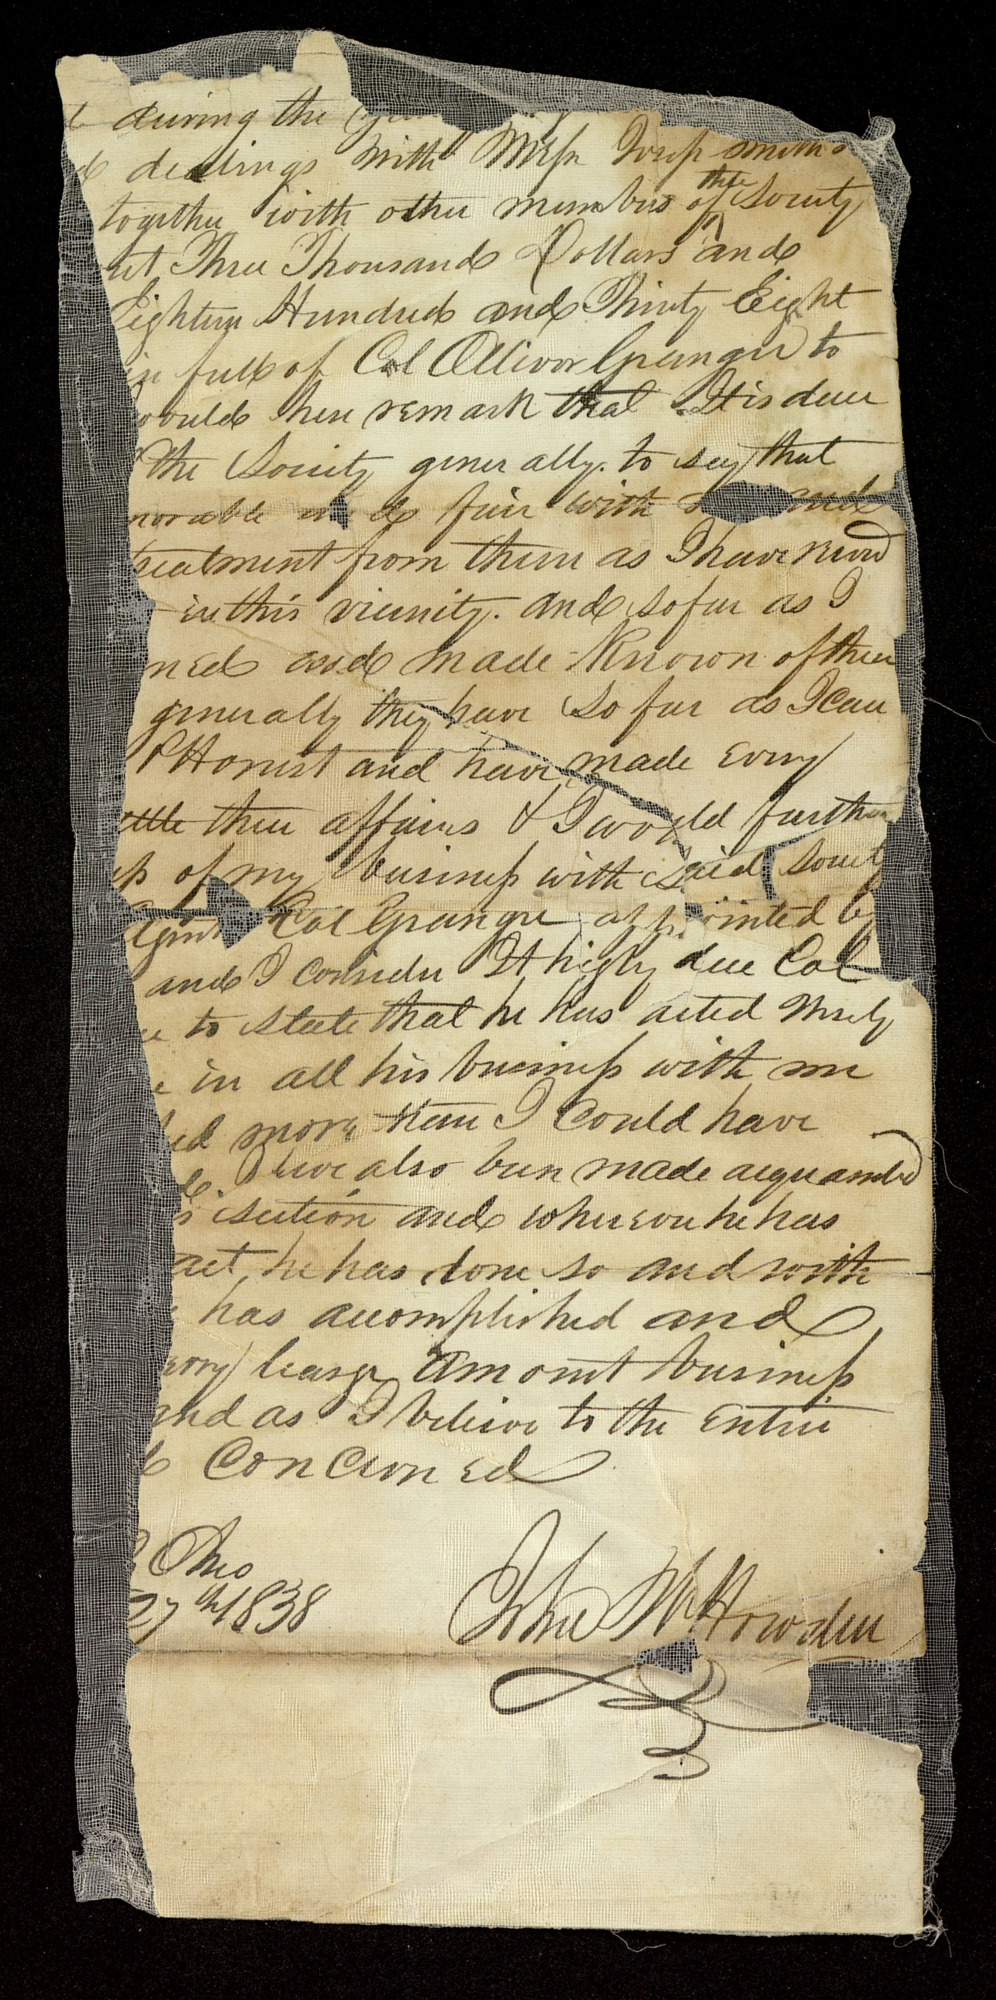 during the
dealings with Mess Josep smith
together with other members of the Society
Three Thousand Dollars and
Eighteen Hundred and Thirty Eight
in full of Col Olliver Granger to
would here remark that It is due
the Society generally. to say that
norable and fair with and
treatment from them as I have
in this vicinity. and so far as I
ned and made Known of their
generally they have so far as I can
Honest and have made Evry
ettle their affairs & I would further
of my business with Said Society
Agent Col Granger appointed by
and I consider It higly due Col
to State that he has acted
in all his business with me
ed more than I Could have
have also been made acquanted
section and wherevr he has
act, he has done so and with
has acomplished and
very learge Amount business
and as I beleive to the Entire
Concerned
Ohio
27th 1838
John W Howden